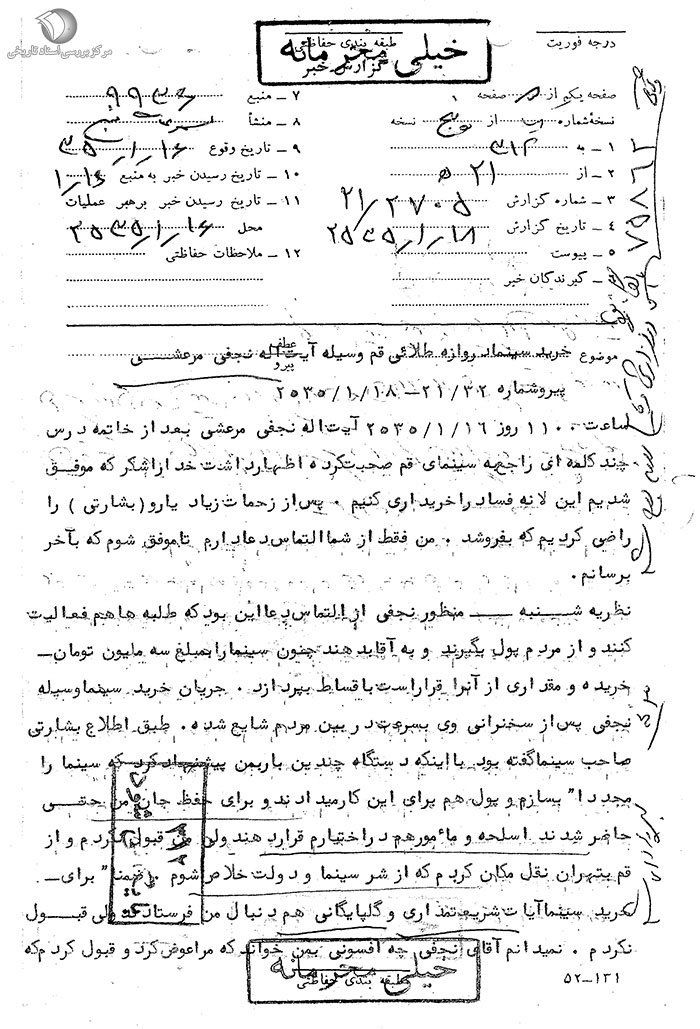 مرکز بررسی اسناد تاریخی
درجه فوریت
طبقه بندی حفاظتی
خیلی محرمانه
گزارش خبر
صفحه یکم از صفحه
نسخه شماره از پنج نسخه
۱ – به ۳۱۲
۲ – از ۲۱ ه
۳ – شماره گزارش ۲۱/۲۷۰۵
۴ – تاریخ گزارش ۲۵۳۵/۱/۱۸
۵ – پیوست
۶ – گیرندگان خبر
۷ – منبع ۹۹۳۶
۸ – منشأ
۹ – تاریخ وقوع ۳۵/۱/۱۶
۱۰ – تاریخ رسیدن خبر به منبع ۱/۱۶
۱۱ – تاریخ رسیدن خبر برهبر عملیات
محل ۲۵۳۵/۱/۱۶
۱۲ – ملاحظات حفاظتی
موضوع خرید سینمادروازه طلائی قم وسیله آیت‌اله نجفی مرعشی
عطف
پیرو
پیروشماره ۲۱/۳۲–۲۵۳۵/۱/۱۸
ساعت ۱۱۰۰ روز ۲۵۳۵/۱/۱۶ آیت‌اله نجفی مرعشی بعد از خاتمه درس
چند کلمه ای راجع‌به سینمای قم صحبت‌کرده اظهارداشت خدا راشکر که موفق
شدیم این لانه فساد راخریداری کنیم . پس‌از زحمات زیاد یارو(بشارتی ) را
راضی کردیم که بفروشد . من فقط از شما التماس دعا دارم تاموفق شوم که بآخر
برسانم .
نظریه شنبه — منظور نجفی از التماس دعا این بود که طلبه ها هم فعالیت
کنند و از مردم پول بگیرند و به آقا بدهند چون سینما رابمبلغ سه ملیون تومان–
خریده و مقداری از آنرا قراراست باقساط بپردازد . جریان خرید سینما وسیله
نجفی پس‌از سخنرانی وی بسرعت در بین مردم شایع شده . طبق اطلاع بشارتی
صاحب سینماگفته بود بااینکه دستگاه چندین باربمن پیشنهاد کرد که سینما را
مجددا" بسازم و پول هم برای این کارمیدادند و برای حفظ جان من حقی
حاضر شدند اسلحه و مأمورهم دراختیارم قرار دهند ولی من قبول نکردم و از
قم بتهران نقل مکان کردم که از شر سینما و دولت خلاص شوم . ضمنا" برای–
خرید سینما آیات شریعتمداری و گلپایگانی هم دنبال من فرستادند ولی قبول
نکردم . نمیدانم آقای نجفی چه افسونی بمن خواند که مراعوض کرد و قبول کردم که
خیلی محرمانه
طبقه بندی حفاظتی
۵۲–۱۳۱
۷۵۸۶۲